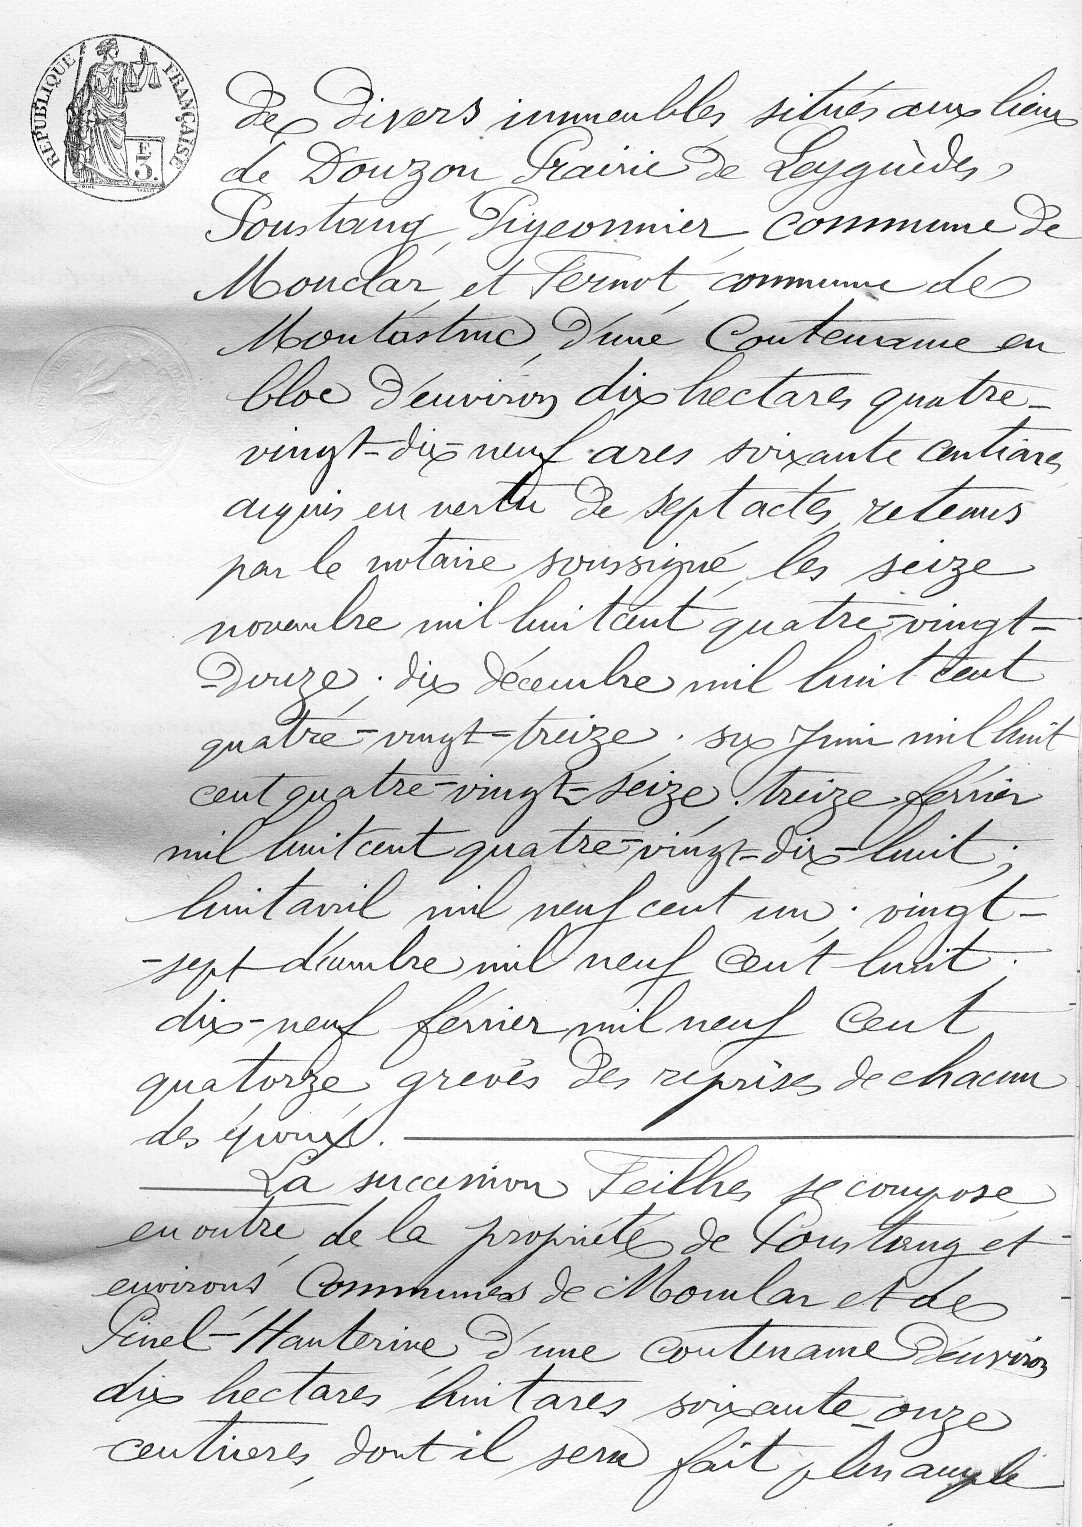 RÉPUBLIQUE FRANÇAISE
F
3.
de divers immeubles, situés aux lieux
de Douzon Prairie de Leyguèdes,
Poustang, Pigeonnier, commune de
Monclar, et Fernot, commune de
Montastruc, d'une Contenance en
bloc d'environ dix hectares quatre-
vingt-dix-neuf ares soixante centiares,
acquis en vertu de sept actes, retenus
par le notaire soussigné, les seize
novembre mil huit cent quatre-vingt-
-douze; dix décembre mil huit cent
quatre-vingt-treize. six Juin mil huit
cent quatre-vingt-seize. treize février
mil huit cent quatre-vingt-dix-huit;
huit avril mil neuf cent un; vingt-
-sept décembre mil neuf cent huit;
dix-neuf février mil neuf cent
quatorze, grevés des reprises de chacun
des époux.
La succession Teilhes se compose,
en outre, de la propriété de Poustang et
environs Communes de Monclar et de
Pinel-Hauterive, d'une contenance d'environ
dix hectares huit ares soixante-onze
centiares, dont il sera fait plus ample